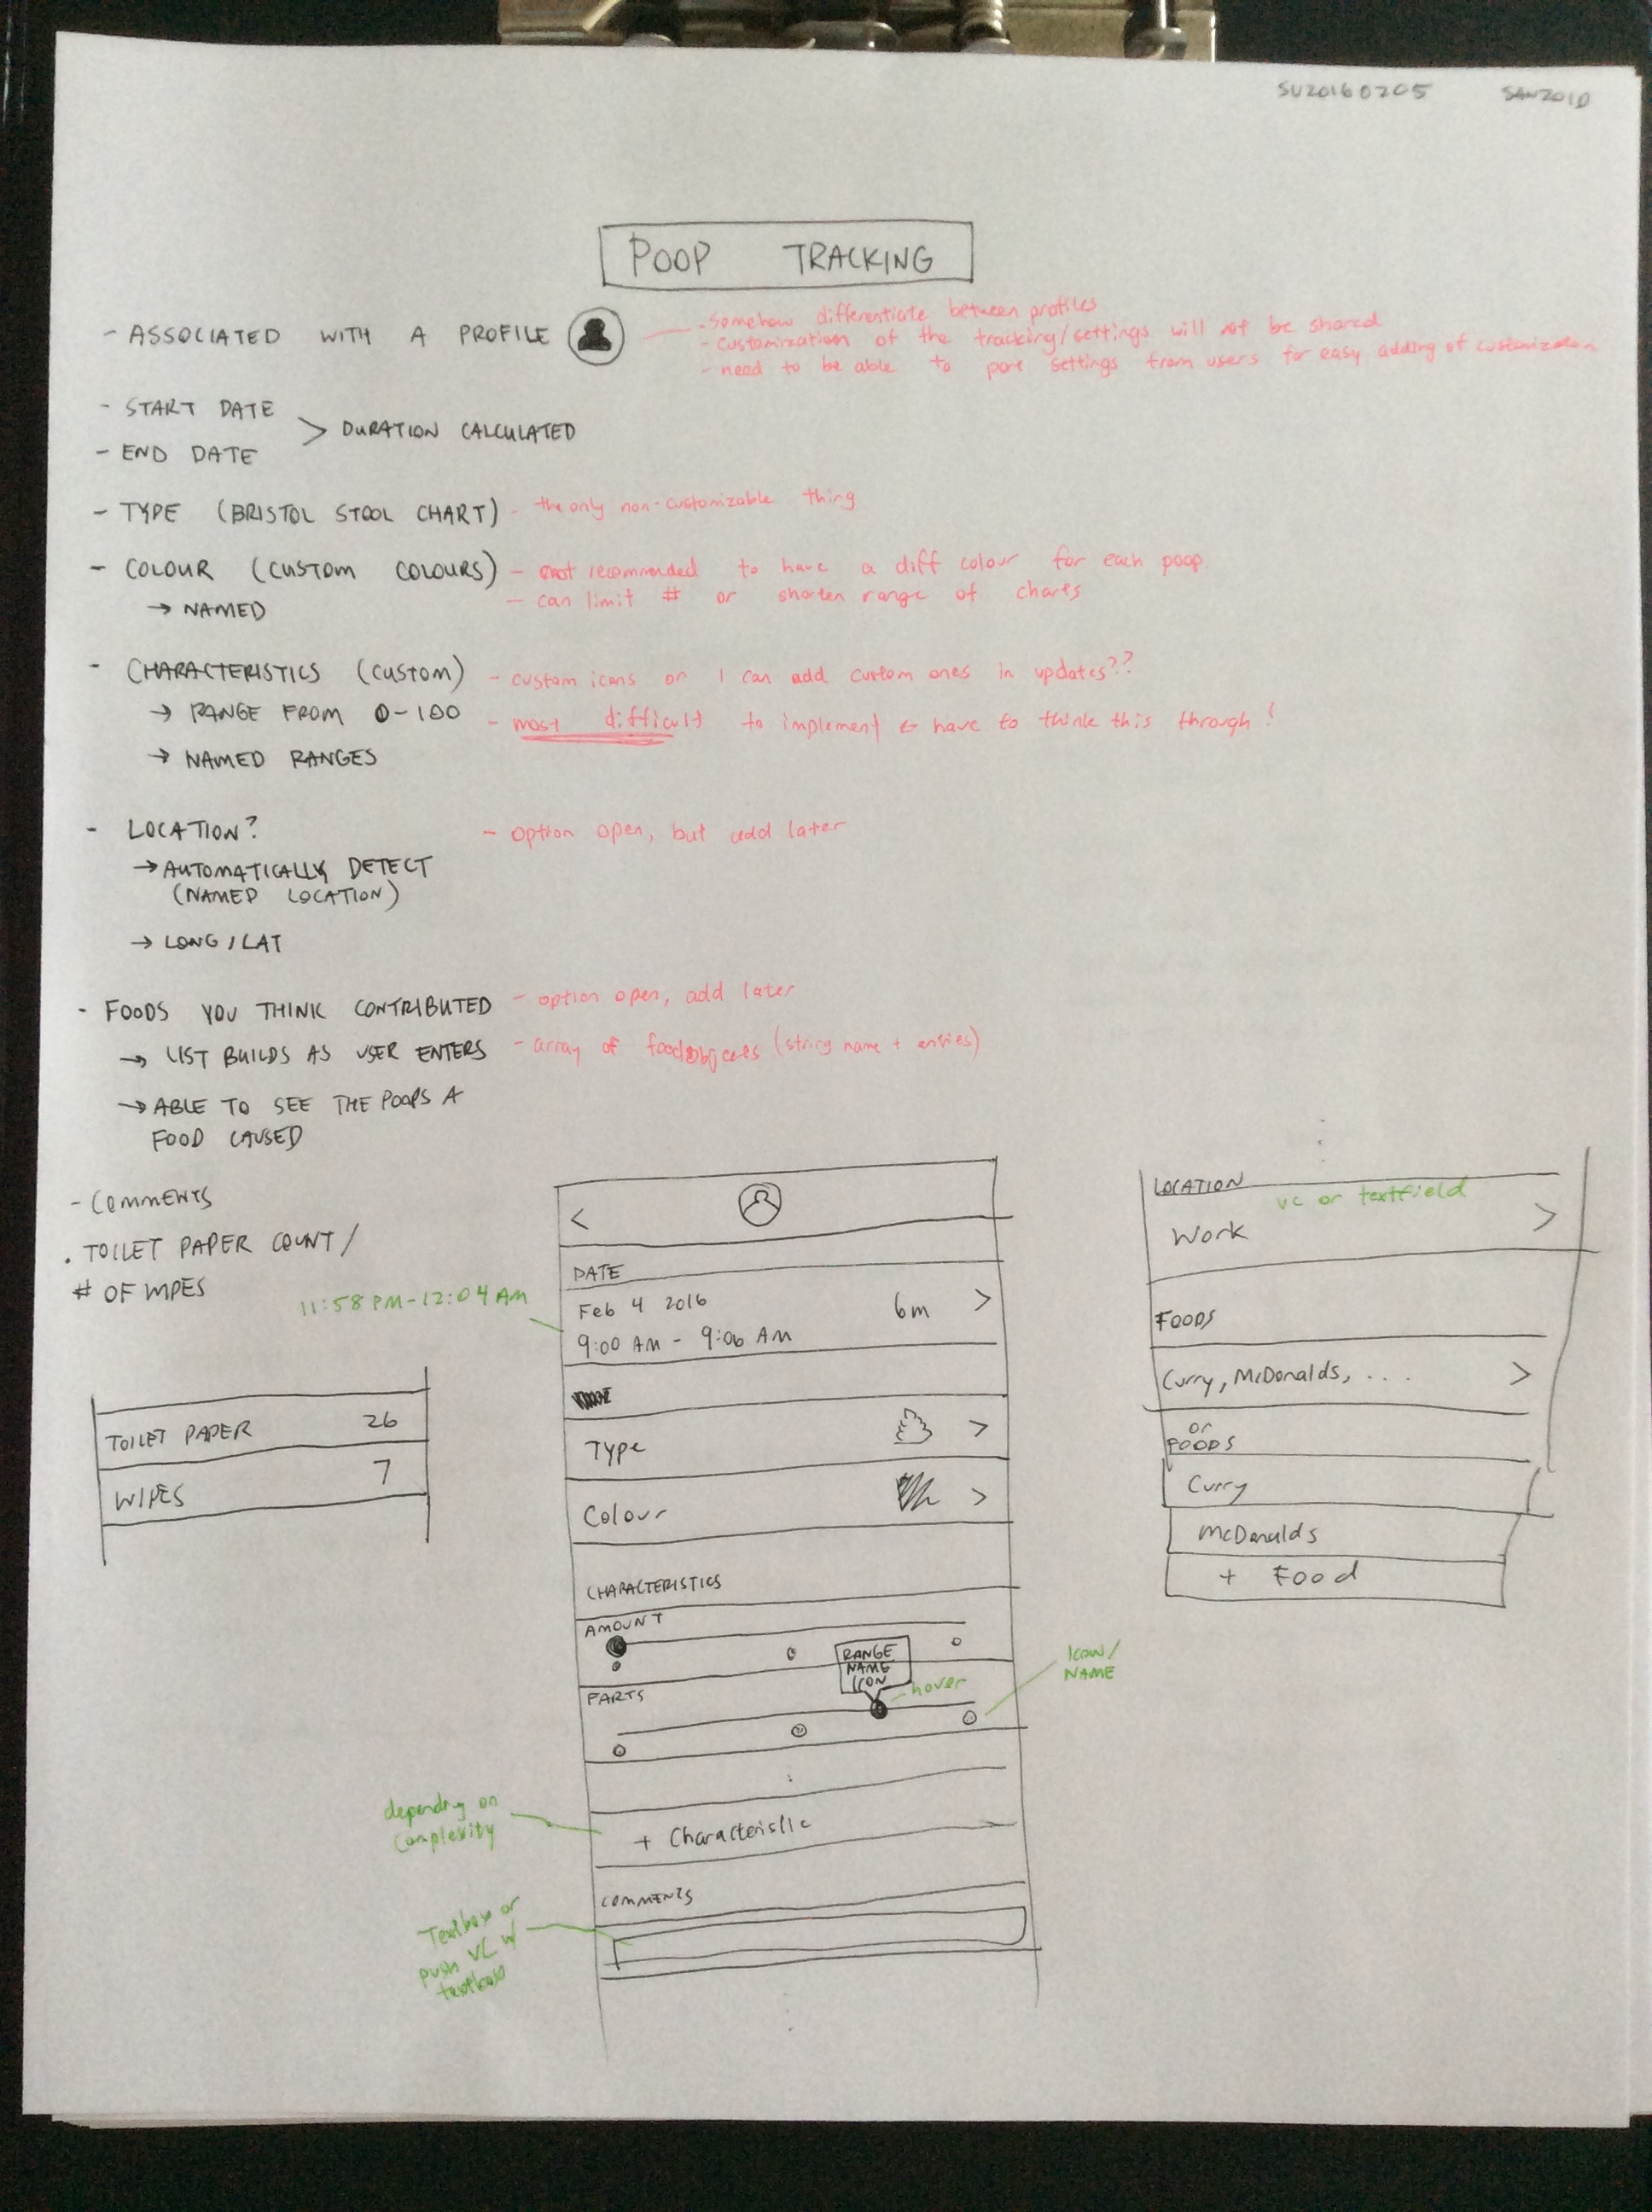 SU20160205 SAN201D
POOP TRACKING
- ASSOCIATED WITH A PROFILE
- Somehow differentiate between profiles
- customization of the tracking/settings will not be shared
- need to be able to port settings from users for easy adding of customization
- START DATE
- END DATE
> DURATION CALCULATED
- TYPE (BRISTOL STOOL CHART) - the only non-customizable thing
- COLOUR (CUSTOM COLOURS) - not recommended to have a diff colour for each poop
→ NAMED
- can limit # or shorten range of charts
- CHARACTERISTICS (CUSTOM) - custom icons or I can add custom ones in updates??
→ RANGE FROM 0-100 - most difficult to implement & have to think this through!
→ NAMED RANGES
- LOCATION? - option open, but add later
→ AUTOMATICALLY DETECT
(NAMED LOCATION)
→ LONG/LAT
- FOODS YOU THINK CONTRIBUTED - option open, add later
→ LIST BUILDS AS USER ENTERS - array of foodobjects (string name + entries)
→ ABLE TO SEE THE POOPS A
FOOD CAUSED
- COMMENTS
. TOILET PAPER COUNT /
# OF WIPES
TOILET PAPER 26
WIPES 7
<
DATE
Feb 4 2016
9:00 AM - 9:06 AM
6m >
11:58 PM-12:04 AM
Type >
Colour >
CHARACTERISTICS
AMOUNT
FARTS
RANGE
NAME
ICON
hover
ICON/
NAME
+ Characteristic
depending on
complexity
COMMENTS
Textbox or
push VC w/
textbox
LOCATION
vc or textfield
Work >
FOODS
Curry, McDonalds, ... >
or
FOODS
Curry
McDonalds
+ Food